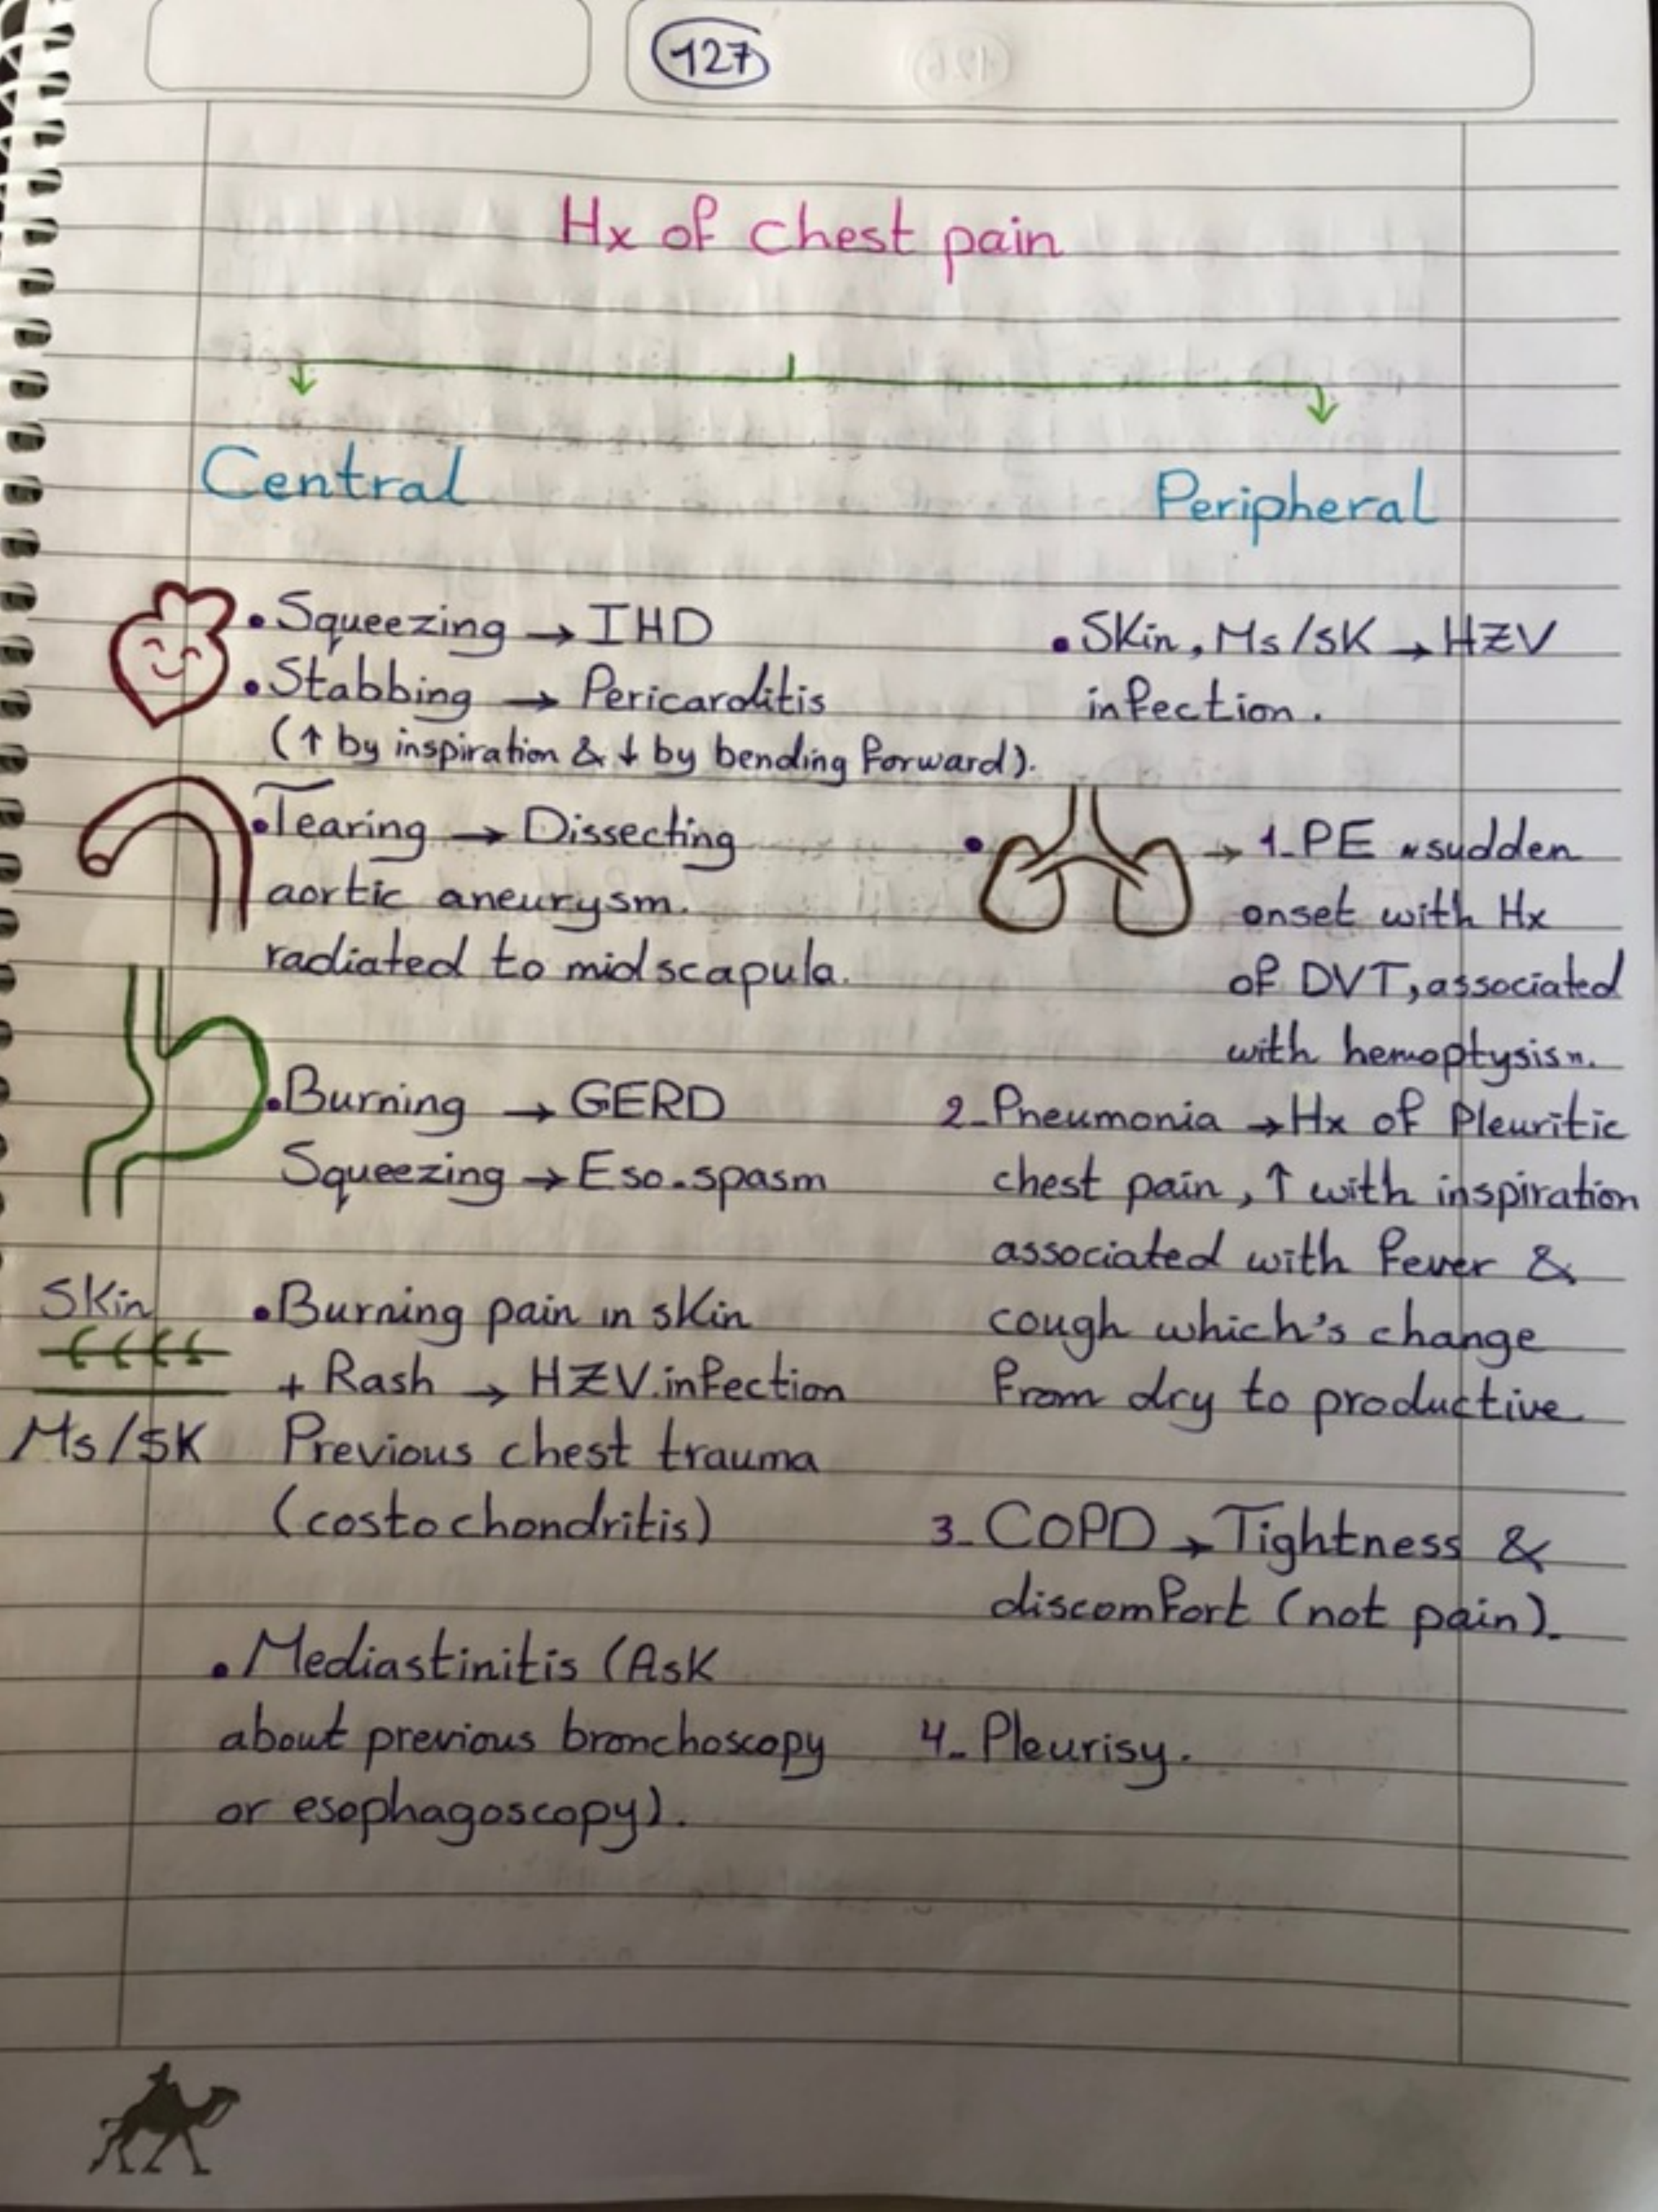 127
Hx of chest pain
Central
• Squeezing → IHD
• Stabbing → Pericarditis
(↑ by inspiration & ↓ by bending forward).
• Tearing → Dissecting
aortic aneurysm.
radiated to midscapula.
• Burning → GERD
Squeezing → Eso.spasm
Skin
• Burning pain in skin
+ Rash → HZV infection
Ms/SK Previous chest trauma
(costochondritis)
• Mediastinitis (Ask
about previous bronchoscopy
or esophagoscopy).
Peripheral
• Skin, Ms/SK → HZV
infection.
• → 1- PE "sudden
onset with Hx
of DVT, associated
with hemoptysis".
2- Pneumonia → Hx of Pleuritic
chest pain, ↑ with inspiration
associated with fever &
cough which's change
from dry to productive
3- COPD → Tightness &
discomfort (not pain).
4- Pleurisy.